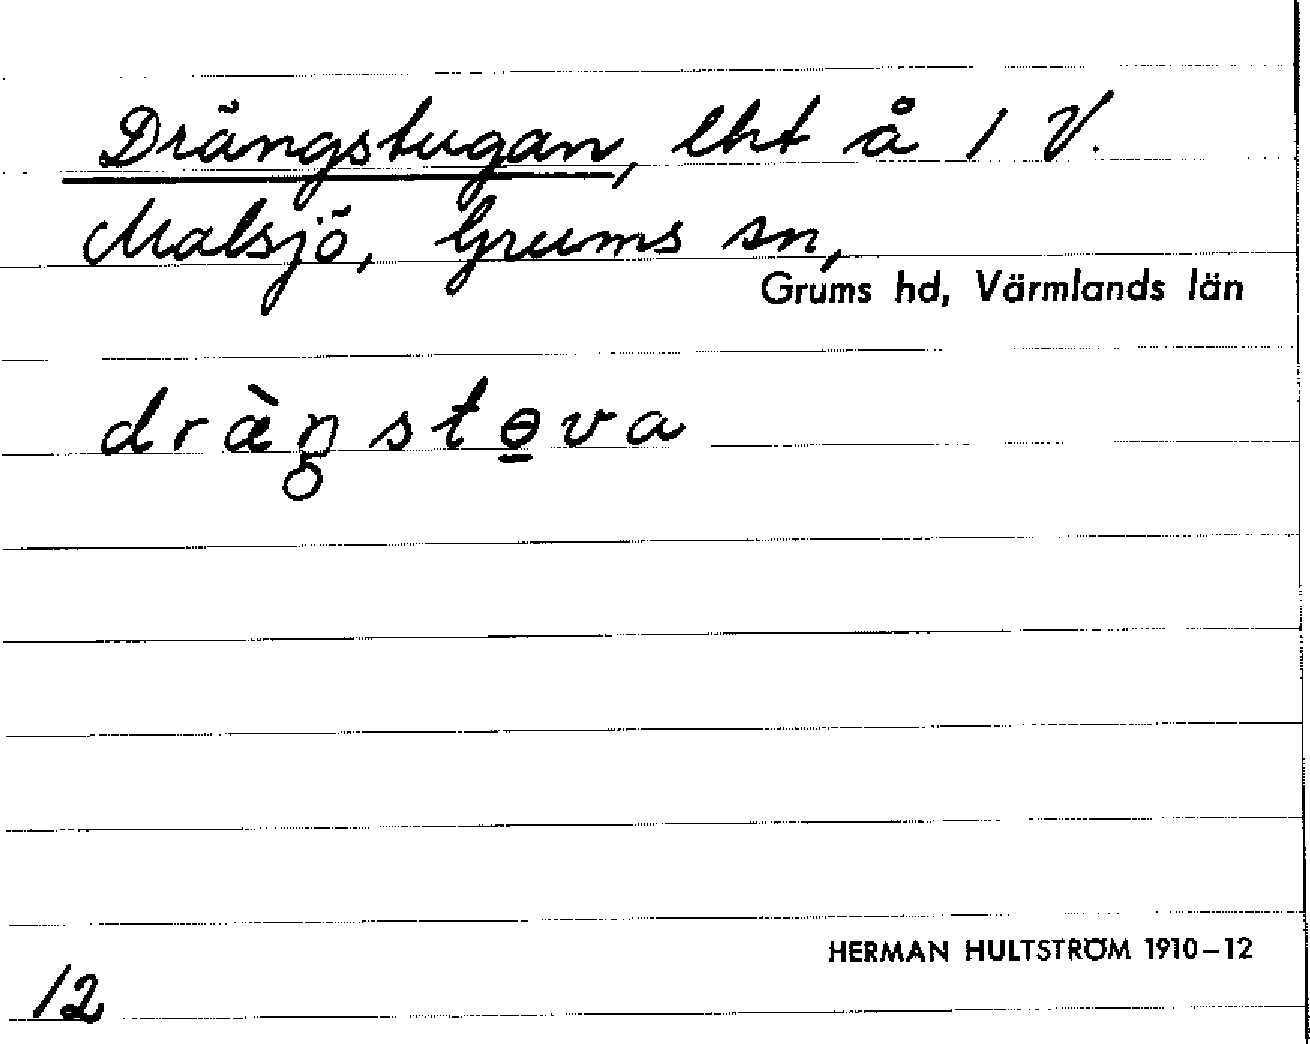 Drängstugan, lht å 1 V.
Malsjö, Grums sn,
Grums hd, Värmlands län
dræ̀ŋstɵ̠va
HERMAN HULTSTRÖM 1910–12
12